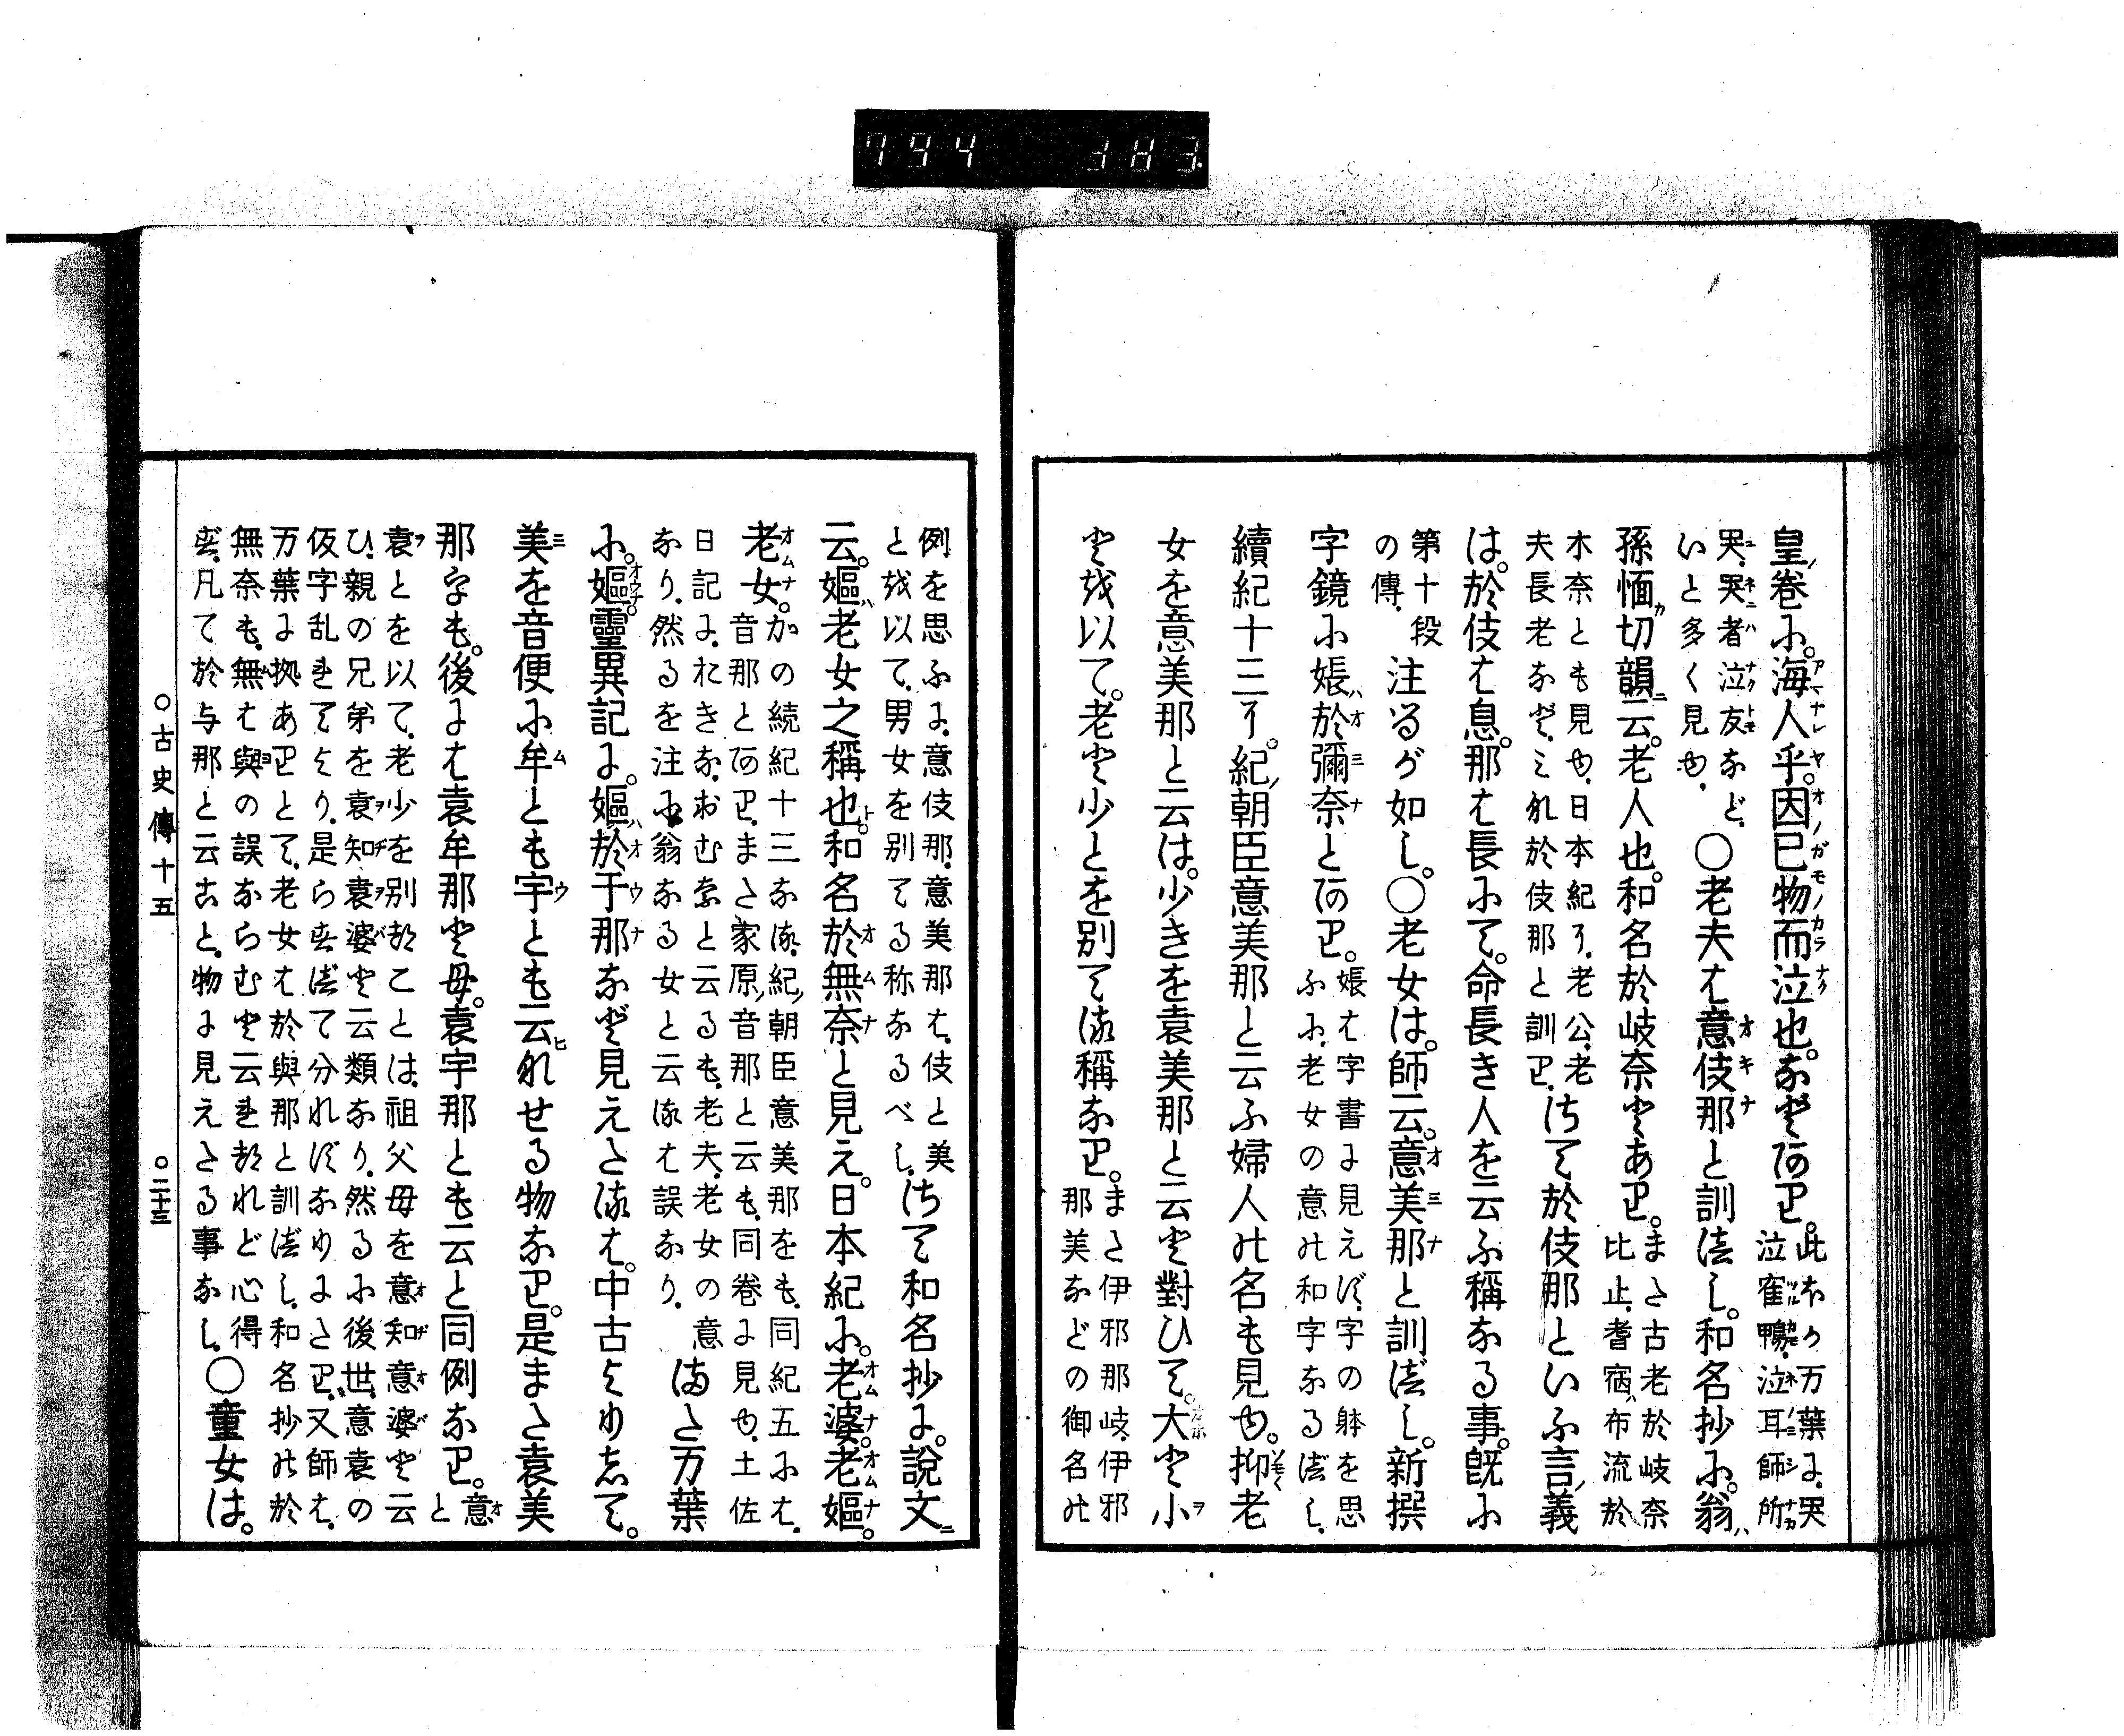 794 383
皇ノ卷に。海人乎。因已物而泣也。など有り。此ほか万葉に、哭
泣寉鴨、泣耳師所
哭、哭者泣友など、
いと多く見ゆ、
○老夫は意伎那と訓べし。和名抄に。翁ハ
孫愐切韻ニ云。老人也。和名於岐奈とあり。また古老於岐奈
比止、耆宿ハ布流於
木奈とも見ゆ、日本紀に、老公、老
夫長老など、みな於伎那と訓り、
さて於伎那といふ言ノ義
は。於伎は息。那は長にて。命長き人を云ふ稱なる事。既に
第十段
の傳、
注るが如し。○老女は。師云。意美那と訓べし。新撰
字鏡に㛪ハ於彌奈と有り。㛪は字書に見えず、字の躰を思
ふに、老女の意の和字なるべし、
續紀十三に。紀ノ朝臣意美那と云ふ婦人の名も見ゆ。抑老
女を意美那と云は。少きを袁美那と云と對ひて。大と小
とを以て。老と少とを別てる稱なり。また伊邪那岐、伊邪
那美などの御名の
例を思ふに、意伎那、意美那は、伎と美
と以て、男女を別てる称なるべし、
さて和名抄に。説文ニ
云。嫗ハ老女之稱也ト。和名於無奈と見え。日本紀に。老婆。老嫗。
老女。かの続紀十三なる、紀ノ朝臣意美那をも、同紀五には、
音那と有り、また家原ノ音那と云も、同卷に見ゆ、土佐
日記に、おきな、おむなと云るも、老夫、老女の意
なり、然るを注に翁なる女と云るは誤なり、
また万葉
に。嫗靈異記に。嫗ハ於于那など見えたるは。中古よりして。
美を音便に牟とも宇とも云ひなせる物なり。是また袁美
那字も。後には袁牟那と毋。袁宇那とも云と同例なり。意
と
袁とを以て、老少を別ることは、祖父母を意知意婆と云
ひ、親の兄弟を袁知袁婆と云類なり、然るに後世、意袁の
仮字乱れてより、是らすべて分れずなりにたり、又師は、
万葉に拠ありとて、老女は於與那と訓べし、和名抄の於
無奈も、無は與の誤ならむと云れつれど心得
ず、凡て於与那と云こと、物に見えたる事なし、
○童女は。
○古史傳十五
○二十三